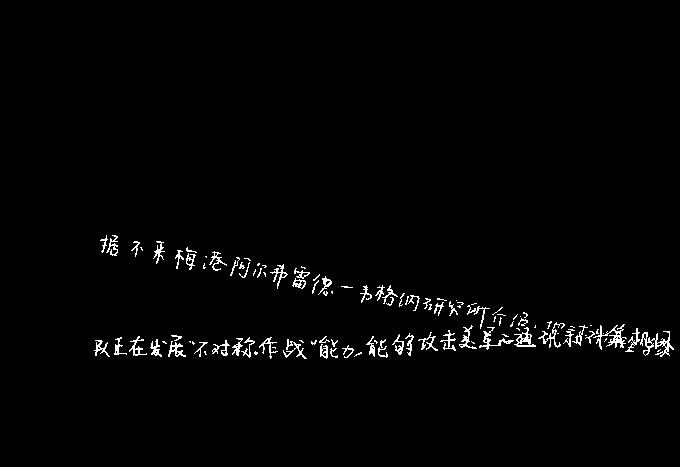 据不来梅港阿尔弗雷德一韦格纳研究所介绍,
队正在发展"不对称作战"能力,能够攻击美军通讯